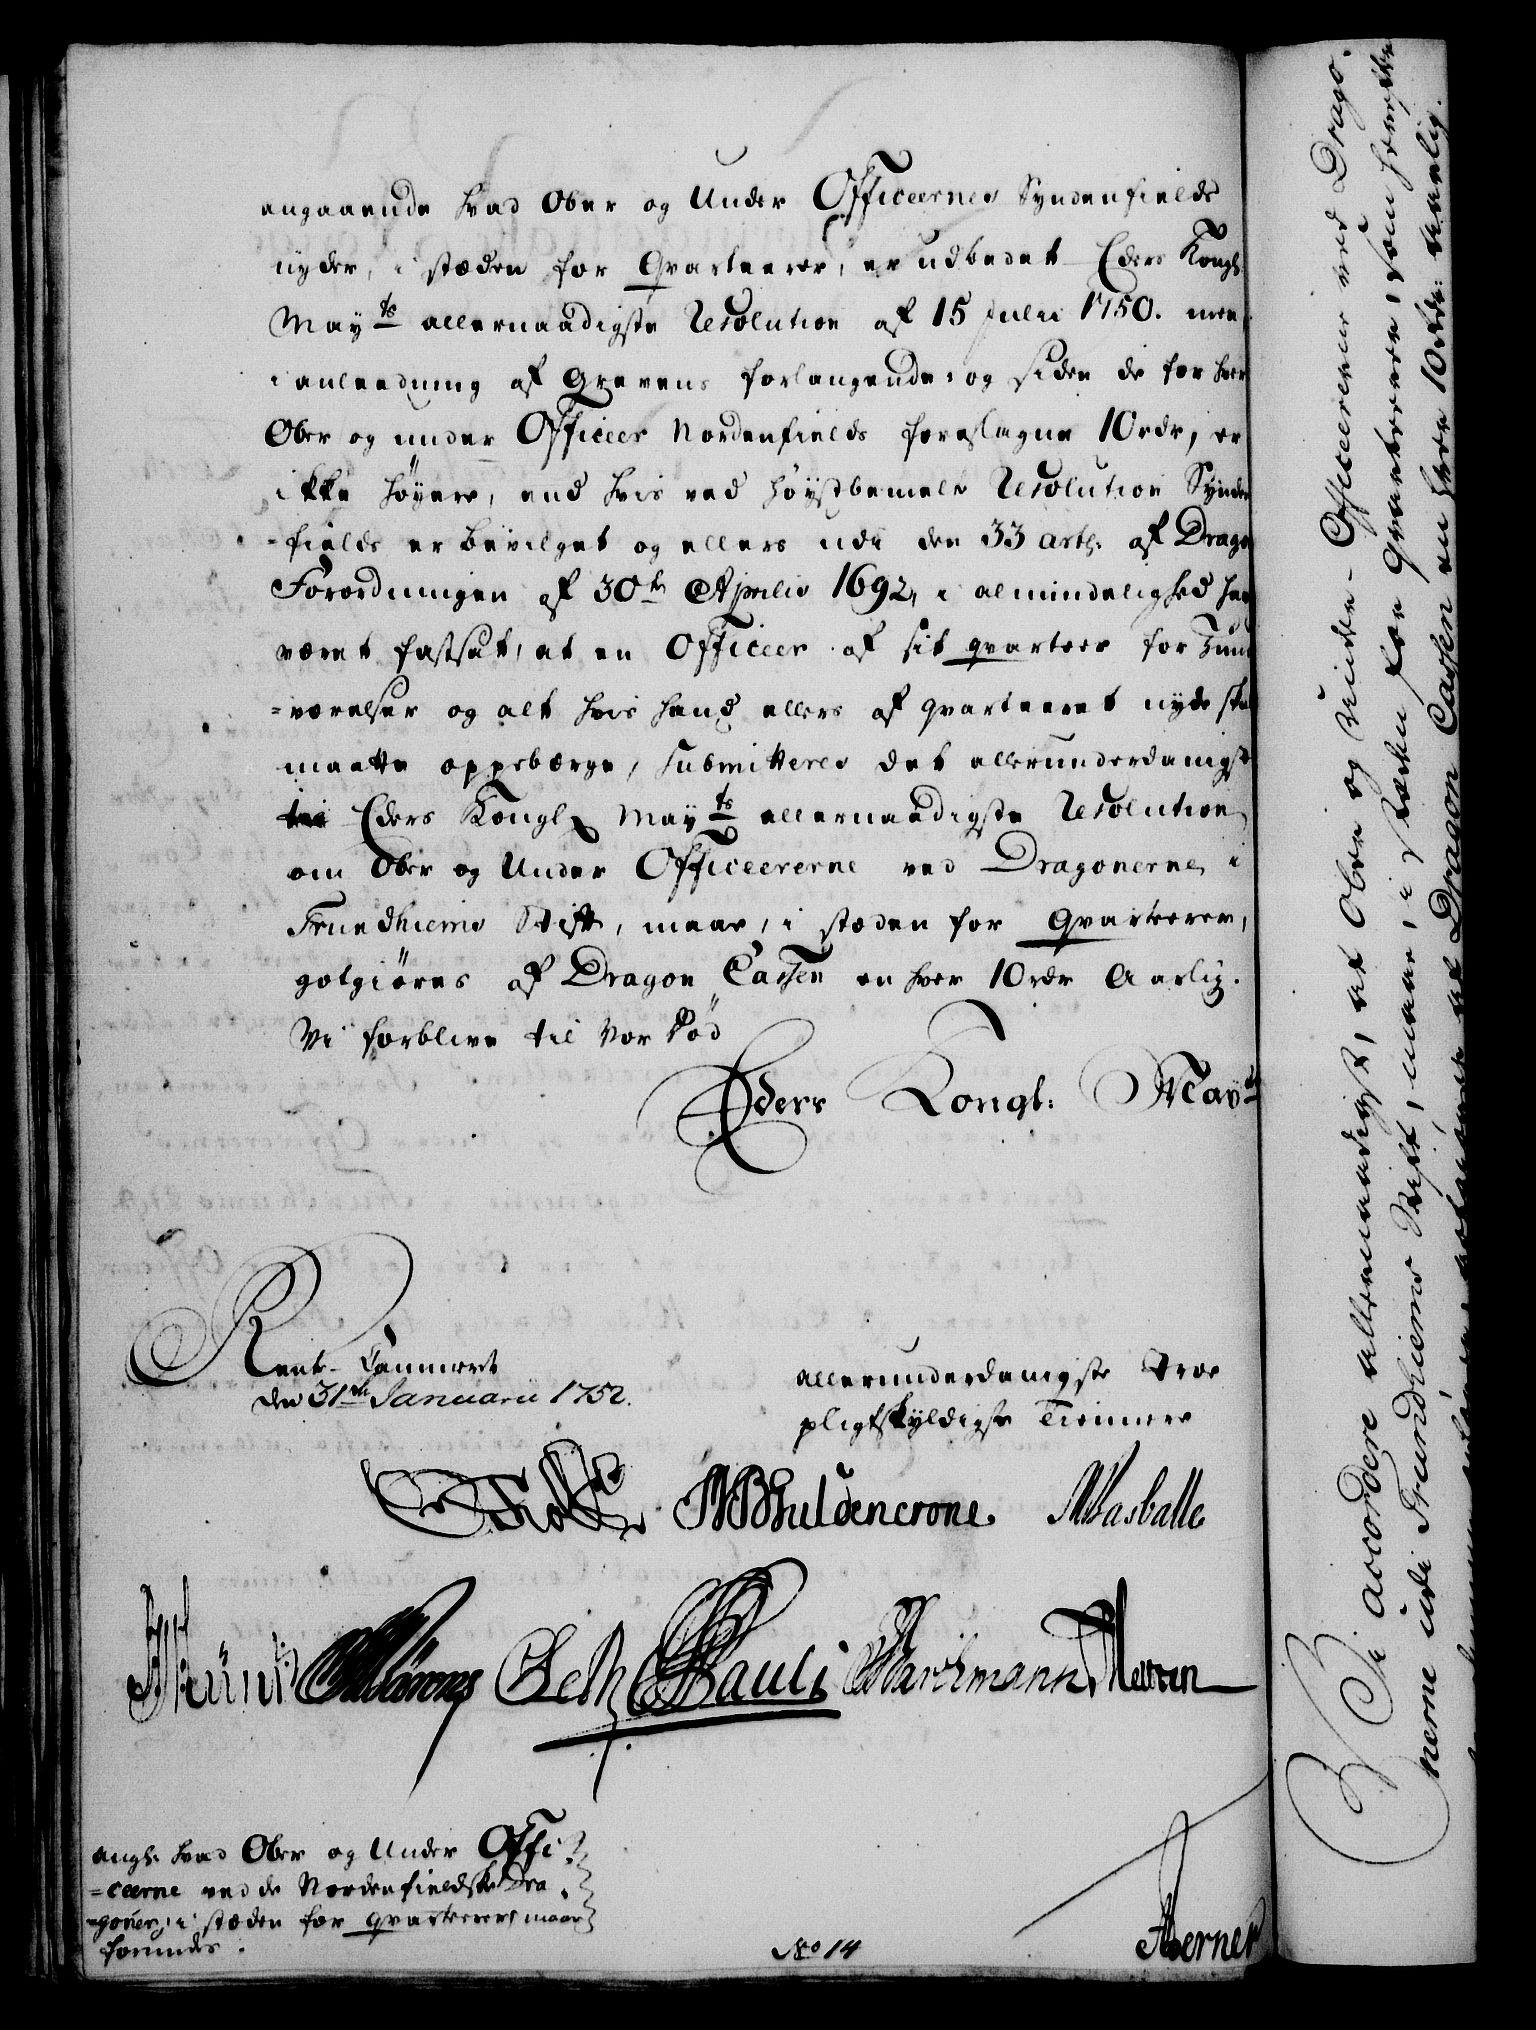 angaaende hvad Ober og Under Officeernes Syndenfields
nyder, i stæden for Qvarteerer, er udbedet Eders Kongl:
May<sup>ts</sup> allernaadigste Resolution af 15 Julii 1750. men
i anleedning af Grevens forlangende, og siden de for hver
Ober og under Officeer Nordenfields foreslagne 10 rdr, er
ikke höyere, end hvis ved höystbemelte Resolution Synden
=fields er bevilget og ellers udi den 33 art: af Drago
Forordningen af 30<sup>te</sup> Aprilis 1692, i almindelighed har
været fastsat, at en Officeer af sit qvarteer for Tum
=værelser og alt hvis hand ellers af qvarteeret nyde ska
maatte oppebærge, submitteres det allerunderdanigst
til Eders Kongl May<sup>ts</sup> allernaadigste Resolution,
om Ober og Under Officeererne ved Dragonerne, i
Trundhiems Stift, maae, i stæden for Qvarteerer,
gotgiöres af Dragon Cassen en hver 10 rdr Aarlig.
Vi forblive til Vor Död
Eders Kongl: May<sup>ts</sup>
Rente-Cammeret
den 31<sup>te</sup> Januarii 1752.
allerunderdanigste Troe
pligtskyldigste Tienere
Guldencrone. Basballe
Pauli Wartzmann
angl: hvad Ober og Under Offi
=ceerne ved de Nordenfieldske Dra
=goner, i stæden for qvarteerer maae
forundes.
No 14
Berner
Vi accordere allernaadigst, at Ober og Under-Officererne ved Drago-
nerne udi Trundhiems Stift, maae, i stæden for Qvarterer, som
af Dragon Cassen en hver 10 rdr: aarlig.